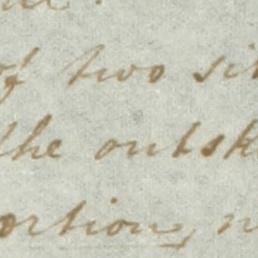 of two si
the outsk
ortion, n